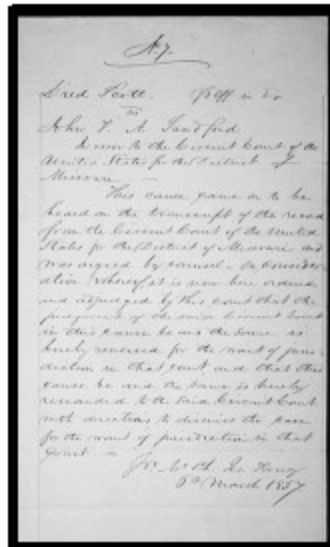 No 7.
Dred Scott. Plff in Er
vs
John F. A. Sandford
In error to the Circuit Court of the
United States for the District of
Missouri —
This cause came on to be
heard on the transcript of the record
from the Circuit Court of the United
States for the District of Missouri and
was argued by counsel — on consider-
ation whereof it is now here ordered
and adjudged by this court that the
judgment of the said Circuit Court
in this cause be and the same is
hereby reversed for the want of juris-
diction in that court and that this
cause be and the same is hereby
remanded to the said Circuit Court
with directions to dismiss the case
for the want of jurisdiction in that
Court. —
Mr. Ch. Jus. Taney
6th March 1857